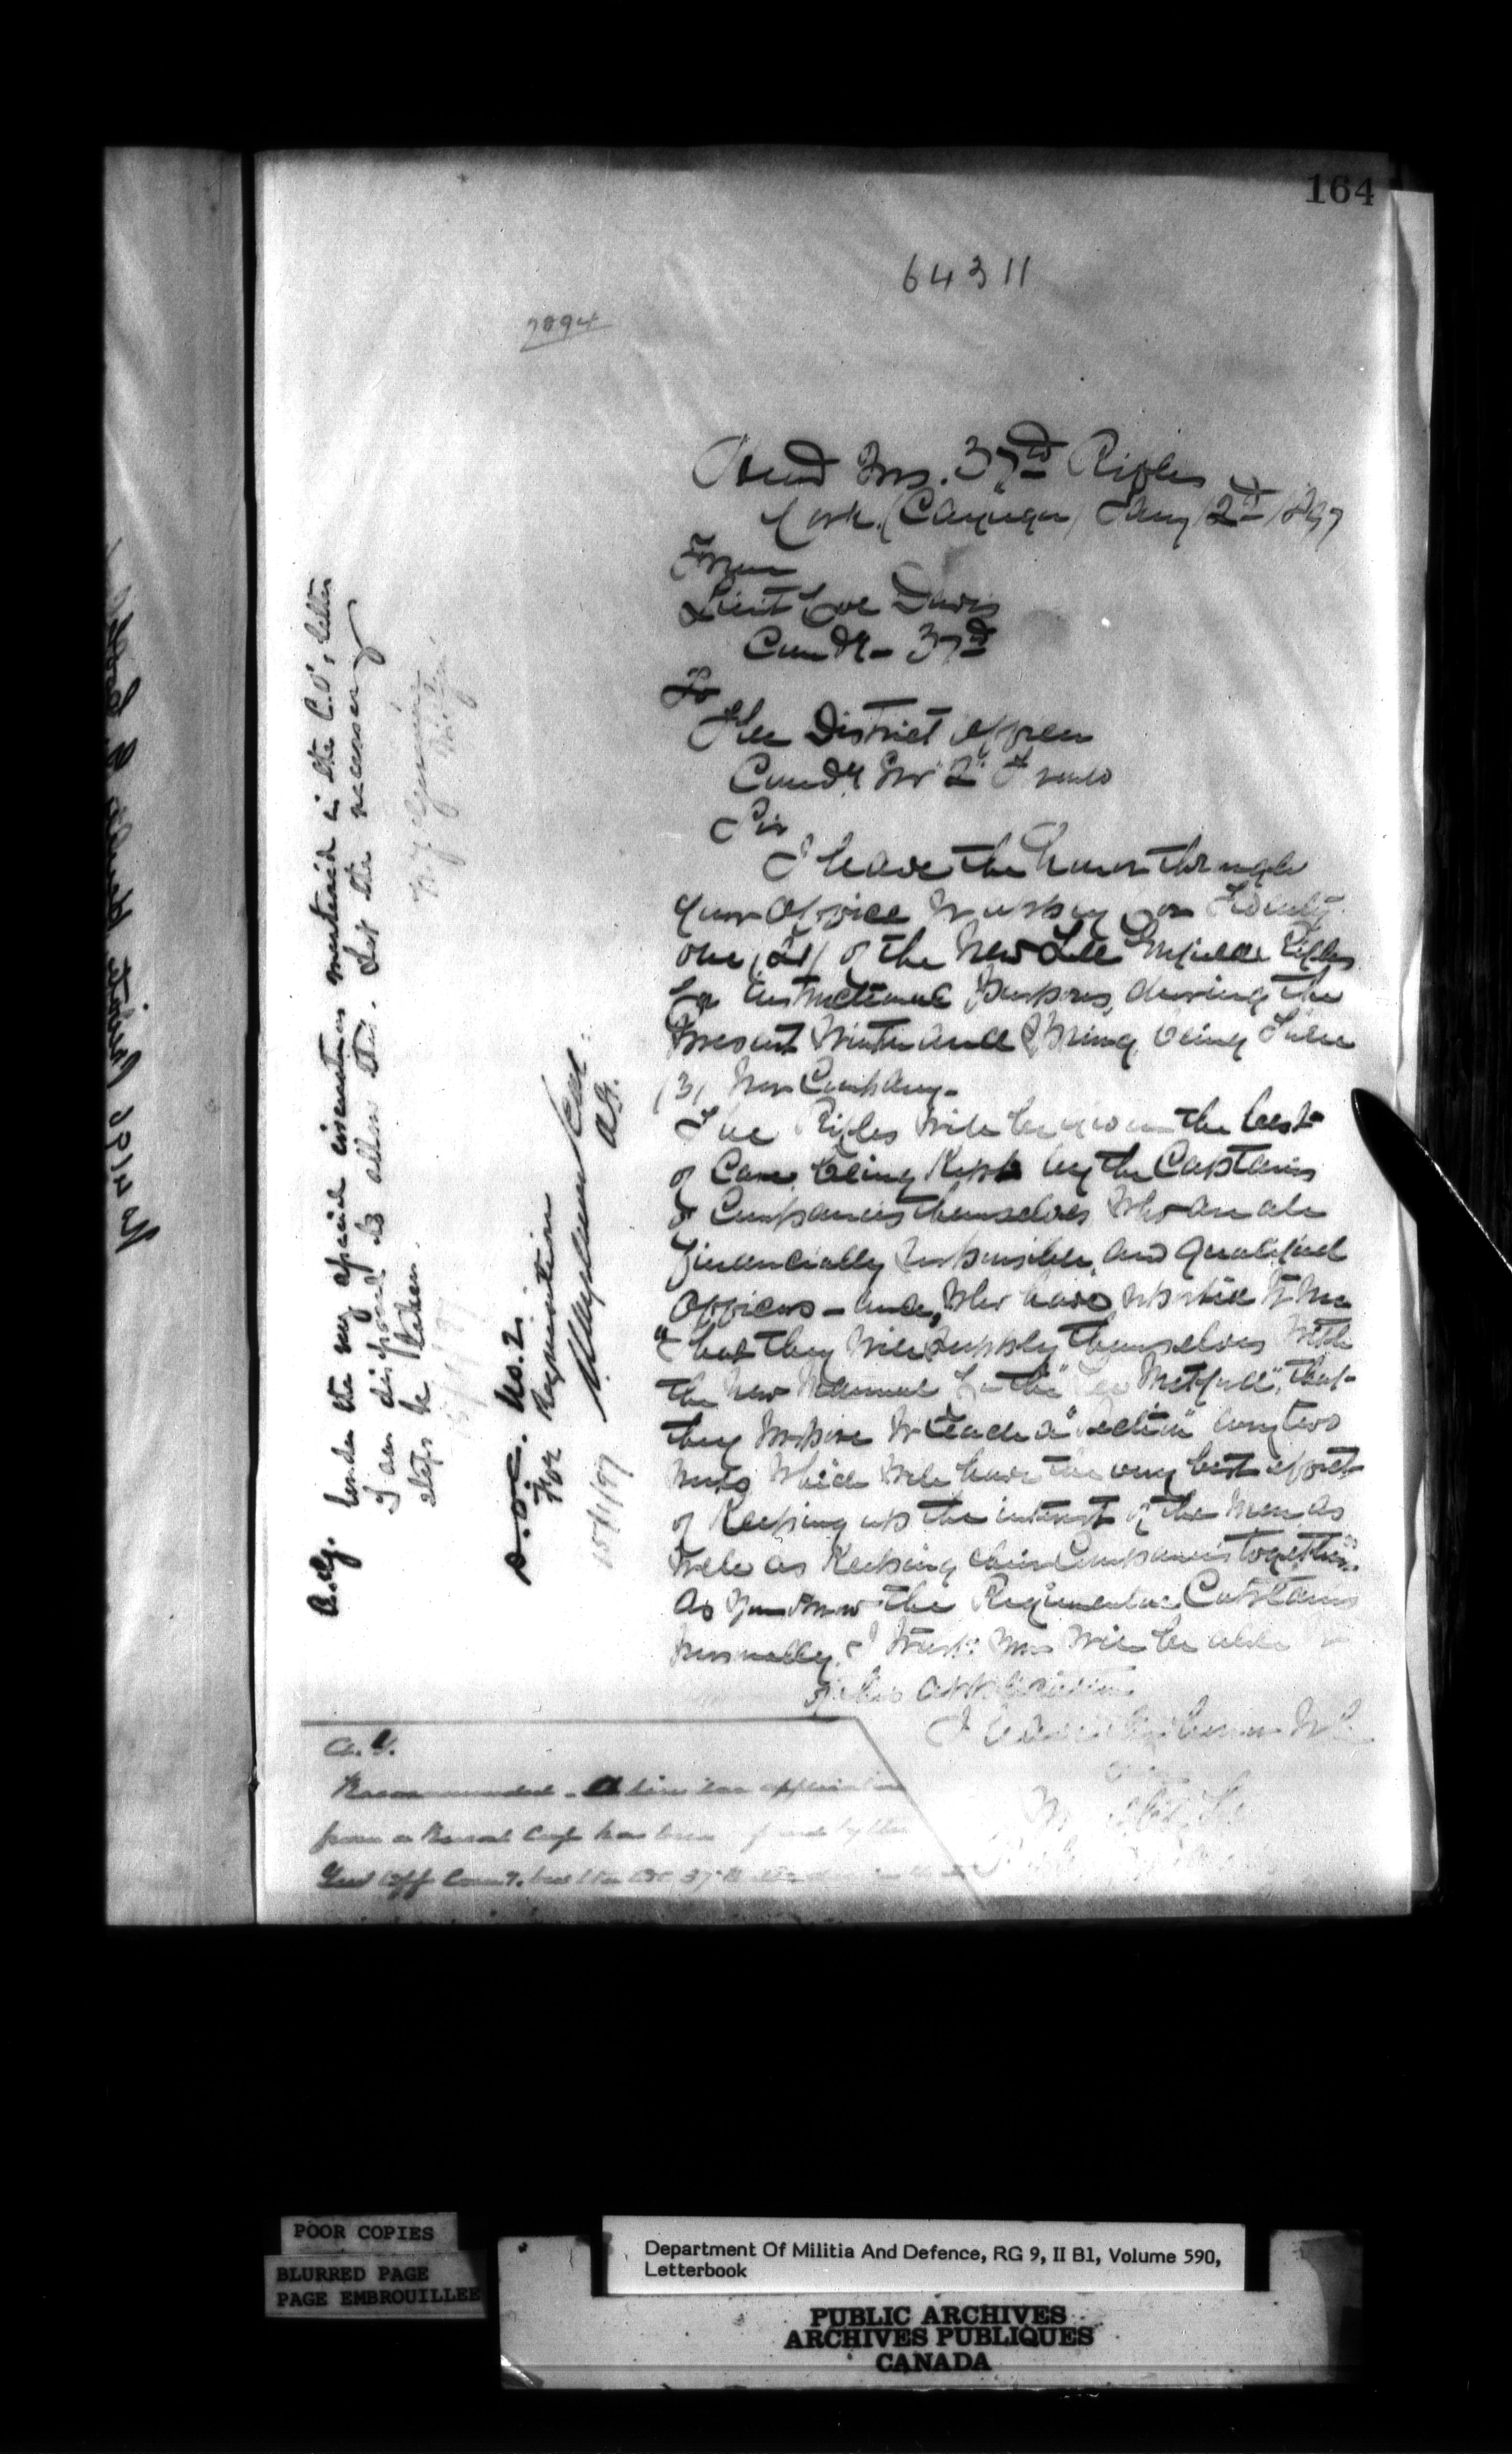 164
64311
2894
Head Qrs. 37th Rifles
York (Cayuga) Jany 12th 1897
From
Lieut Col Davis
Comdg - 37th
To
The District officer
Comdg No "2" Toronto
Sir
I have the honor through
your office to apply for Twenty
one (21) of the New Lee Enfield Rifles
for instructional purposes, during the
Present Winter and Spring, being Three
(3) per Company.
The Rifles will be given the best
of Care, being Kept by the Captains
of Companies themselves who are all
financially responsible, and qualified
officers - and, who have reported to me
"that they will supply themselves with
the New Manual for the "Lee Metford", that
they propose to teach a "Section" every two
weeks which will have the very best effect
of Keeping up the interest of the men as
well as Keeping their Companies together"
As you know the Regimental Captains
personally, I trust you will be able
of this application
I have the honor to be
A.G.
Recommended - A similar application
from a Rural Corps has been by the
Genl Off Comdg, but the 37th
A.G.
Under the very special circumstances mentioned in the C.O's letter
I am disposed to allow this. Let the necessary
steps be taken.
D.O.C. No. 2.
For Requisition
Col
A.G.
15/1/97
POOR COPIES
BLURRED PAGE
PAGE EMBROUILLEE
Department Of Militia And Defence, RG 9, II B1, Volume 590,
Letterbook
PUBLIC ARCHIVES
ARCHIVES PUBLIQUES
CANADA